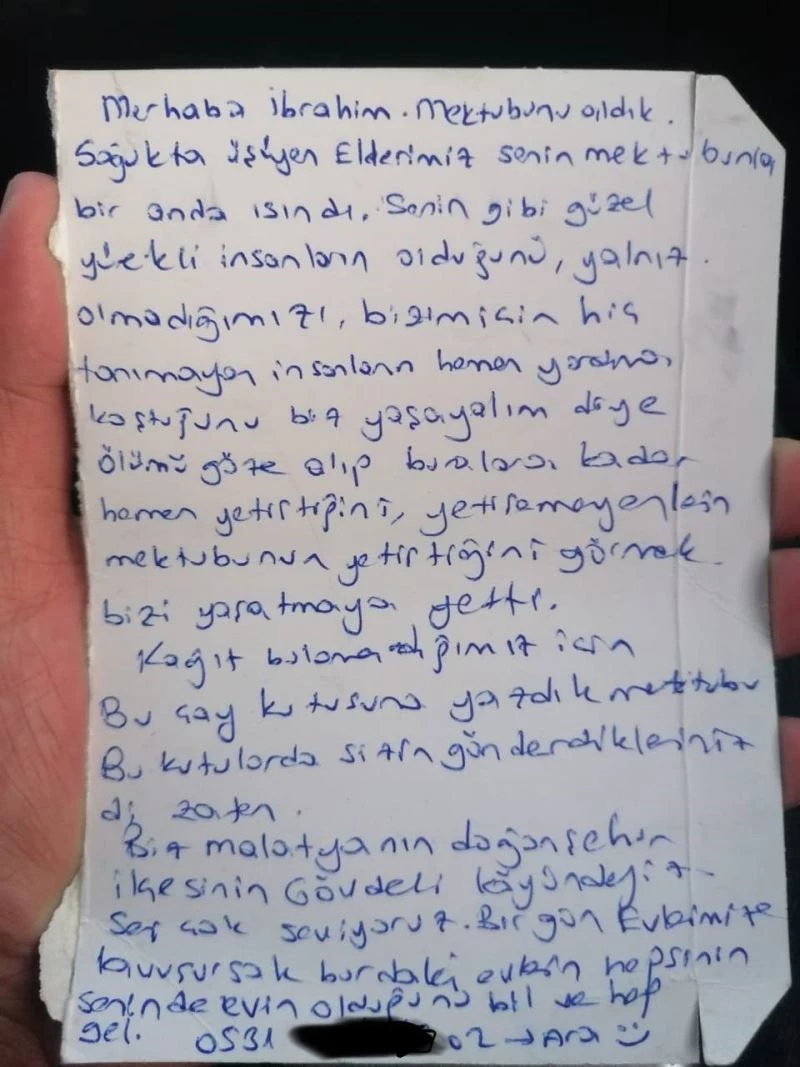 Merhaba İbrahim. Mektubunu aldık.
Soğukta üşüyen Ellerimiz senin mektubunla
bir anda ısındı. Senin gibi güzel
yürekli insanların olduğunu, yalnız
olmadığımızı, bizim için hiç
tanımayan insanların hemen yardıma
koştuğunu biz yaşayalım diye
Ölümü göze alıp buralara kadar
hemen yetiştiğini, yetişemeyenlerin
mektubunun yetiştiğini görmek
bizi yaşatmaya yetti.
Kağıt bulamadığımız için
Bu çay kutusuna yazdık mektubu
Bu kutularda sizin gönderdikleriniz
di zaten.
Biz malatyanın doğanşehir
ilçesinin Gövdeli köyündeyiz
Seni çok seviyoruz. Bir gün Evlerimize
kavuşursak burdaki evlerin hepsinin
seninde evin olduğunu bil ve hep
gel. 0531 02 → Ara :)